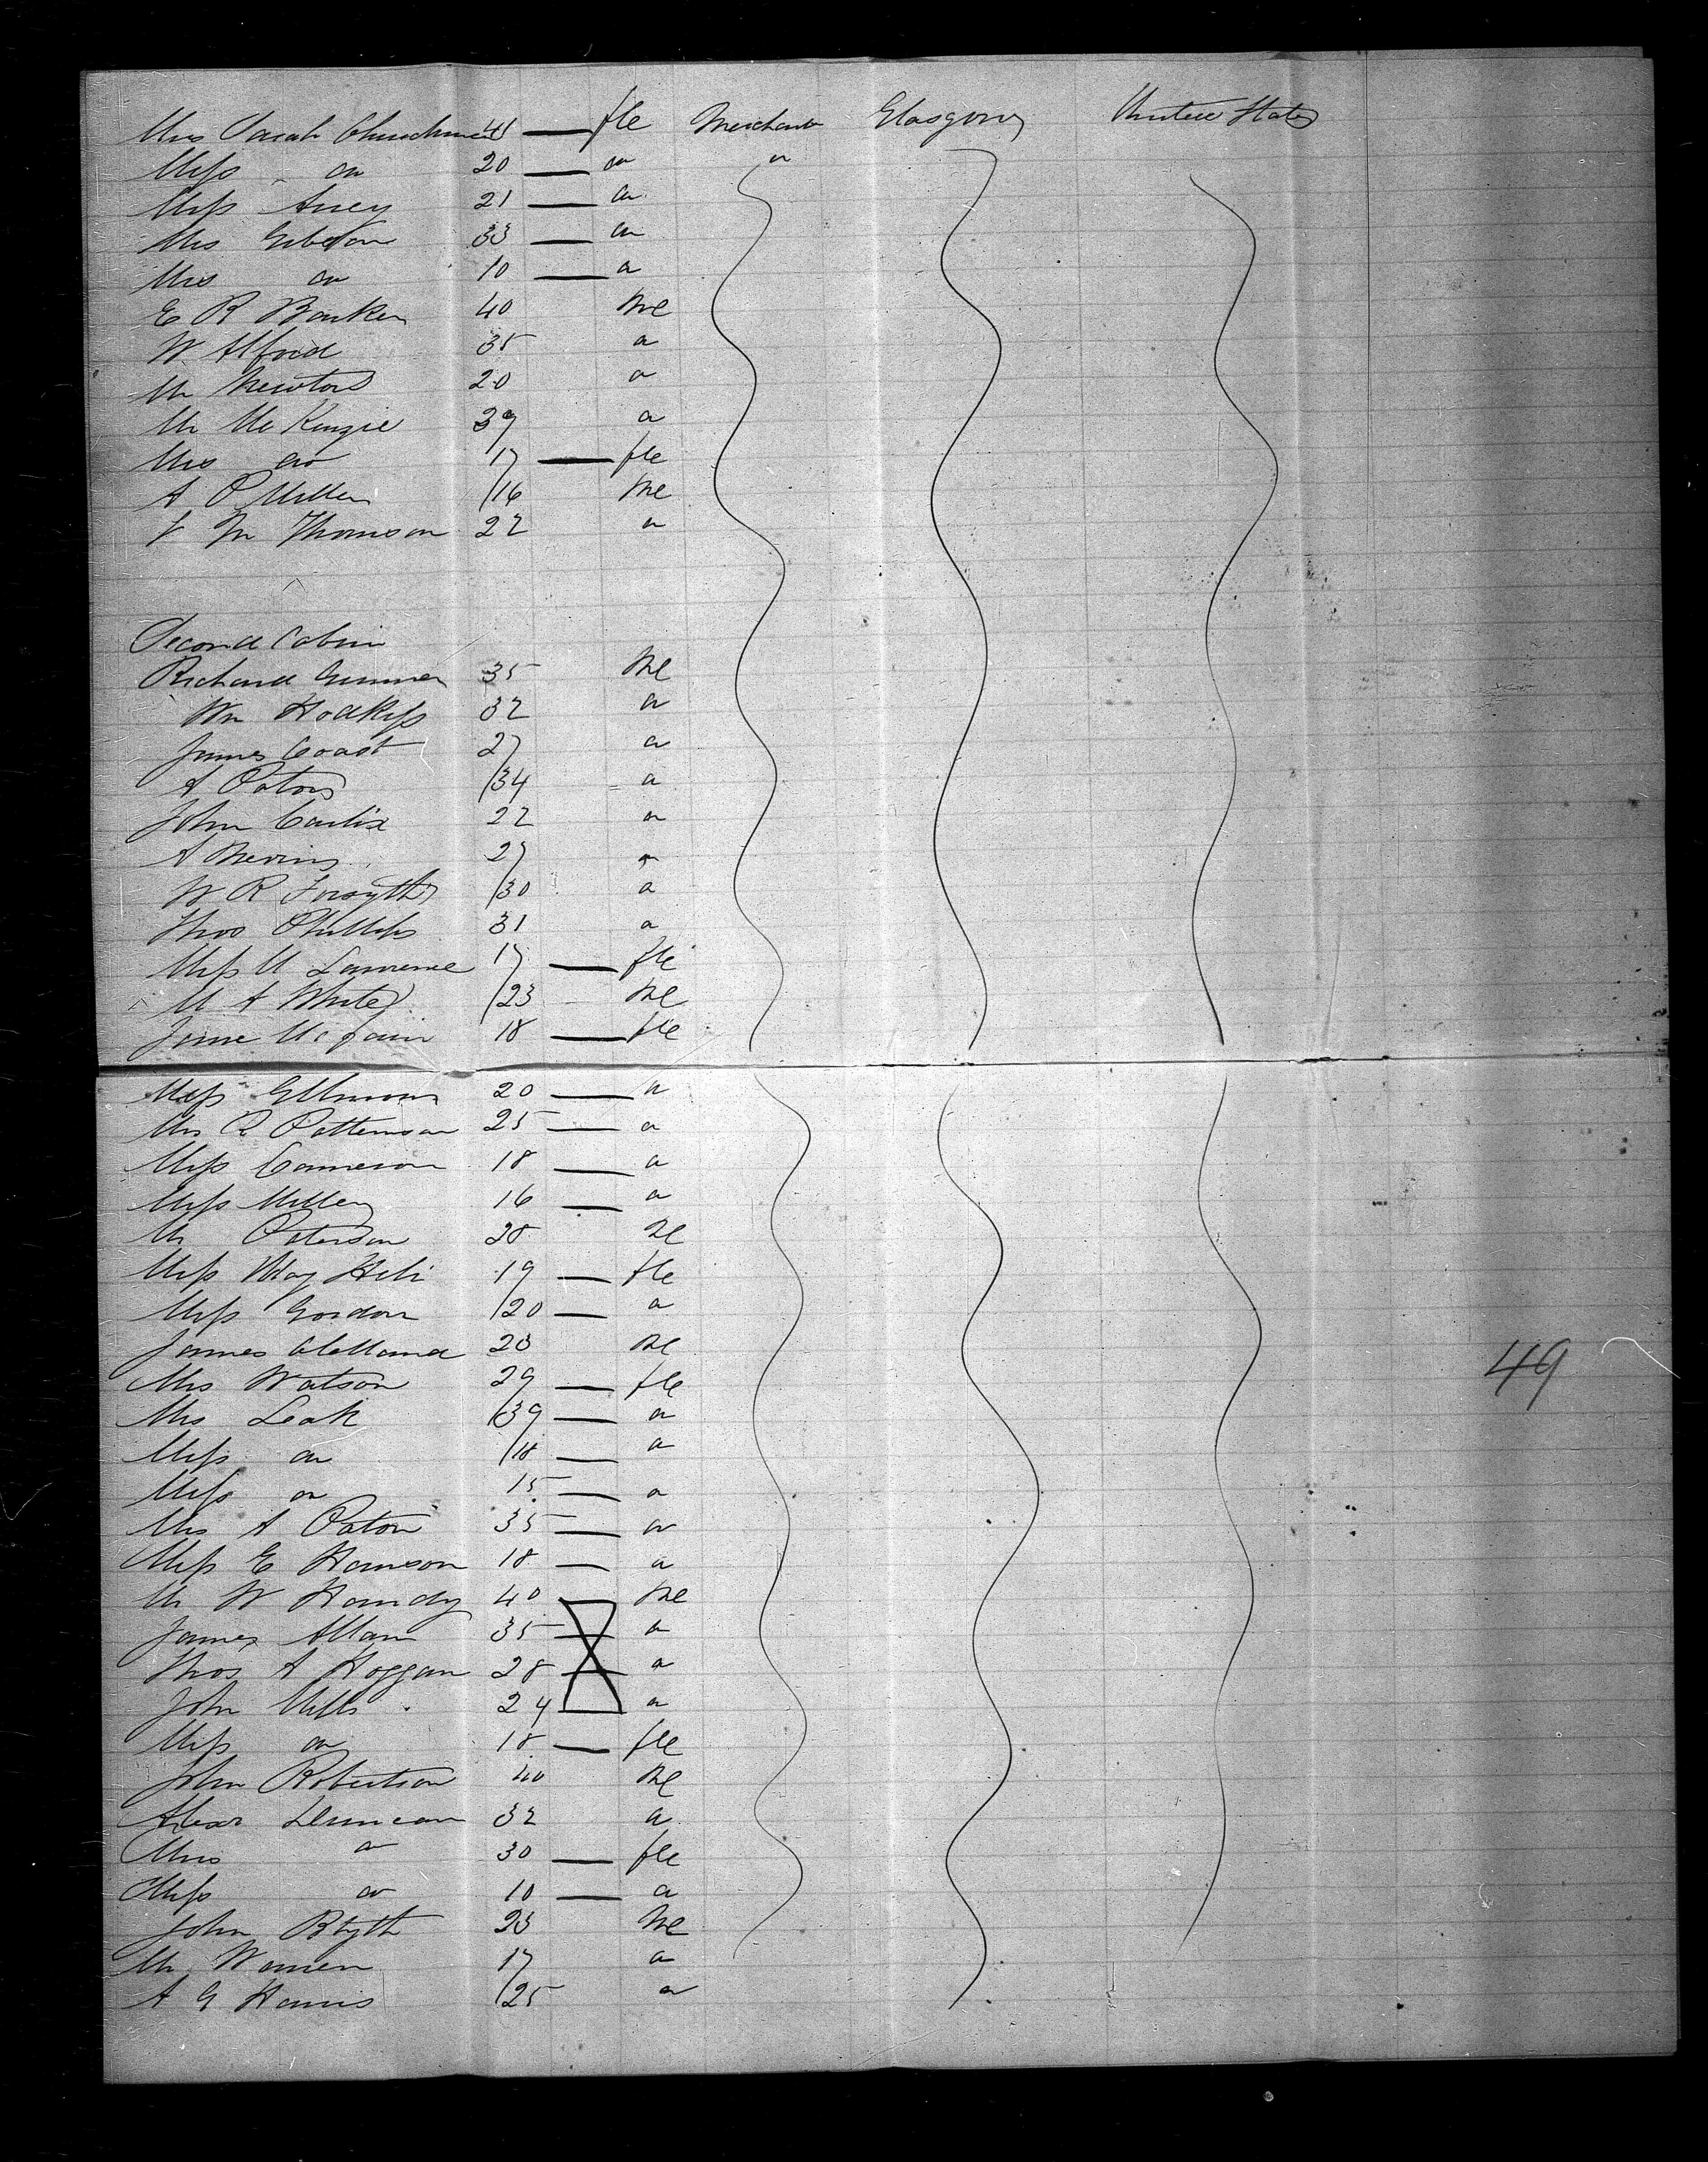 Mrs Sarah 41 fle Merchant Glasgow United States
Miss do 20 do do
Miss 21 do
Mrs Gibson 33 do
Mrs do 10 do
E R Barker 40 Me
W Alford 35 do
Mr Newton 20 do
Mr McKenzie 39 do
Mrs do 17 fle
A P Miller 16 Me
J M Thomson 22 do
Second Cabin
Richard Gunner 35 Me
Wm Hodkiss 32 do
James Coast 27 do
A Paton 34 do
John 22 do
A Nevins 27 do
W R Forsyth 30 do
Thos Phillips 31 do
Miss M Lawrence 17 fle
M A White 23 Me
Jane 18 fle
Miss 20 do
Mrs R Patterson 25 do
Miss Cameron 18 do
Miss Miller 16 do
Mr Paterson 28 Me
Miss May 19 fle
Miss Gordon 20 do
James Clelland 23 Me
Mrs Watson 29 fle
Mrs Leak 39 do
Miss do 18 do
Miss do 15 do
Mrs A Paton 35 do
Miss E 18 do
Mr W Handy 40 Me
James Allan 35 do
Thos A Hoggan 28 do
John Mills 24 do
Miss do 18 fle
John Robertson 40 Me
Alexr Duncan 32 do
Mrs do 30 fle
Miss do 10 do
John Blyth 23 Me
Mr Warren 17 do
A G Harris 25 do
49